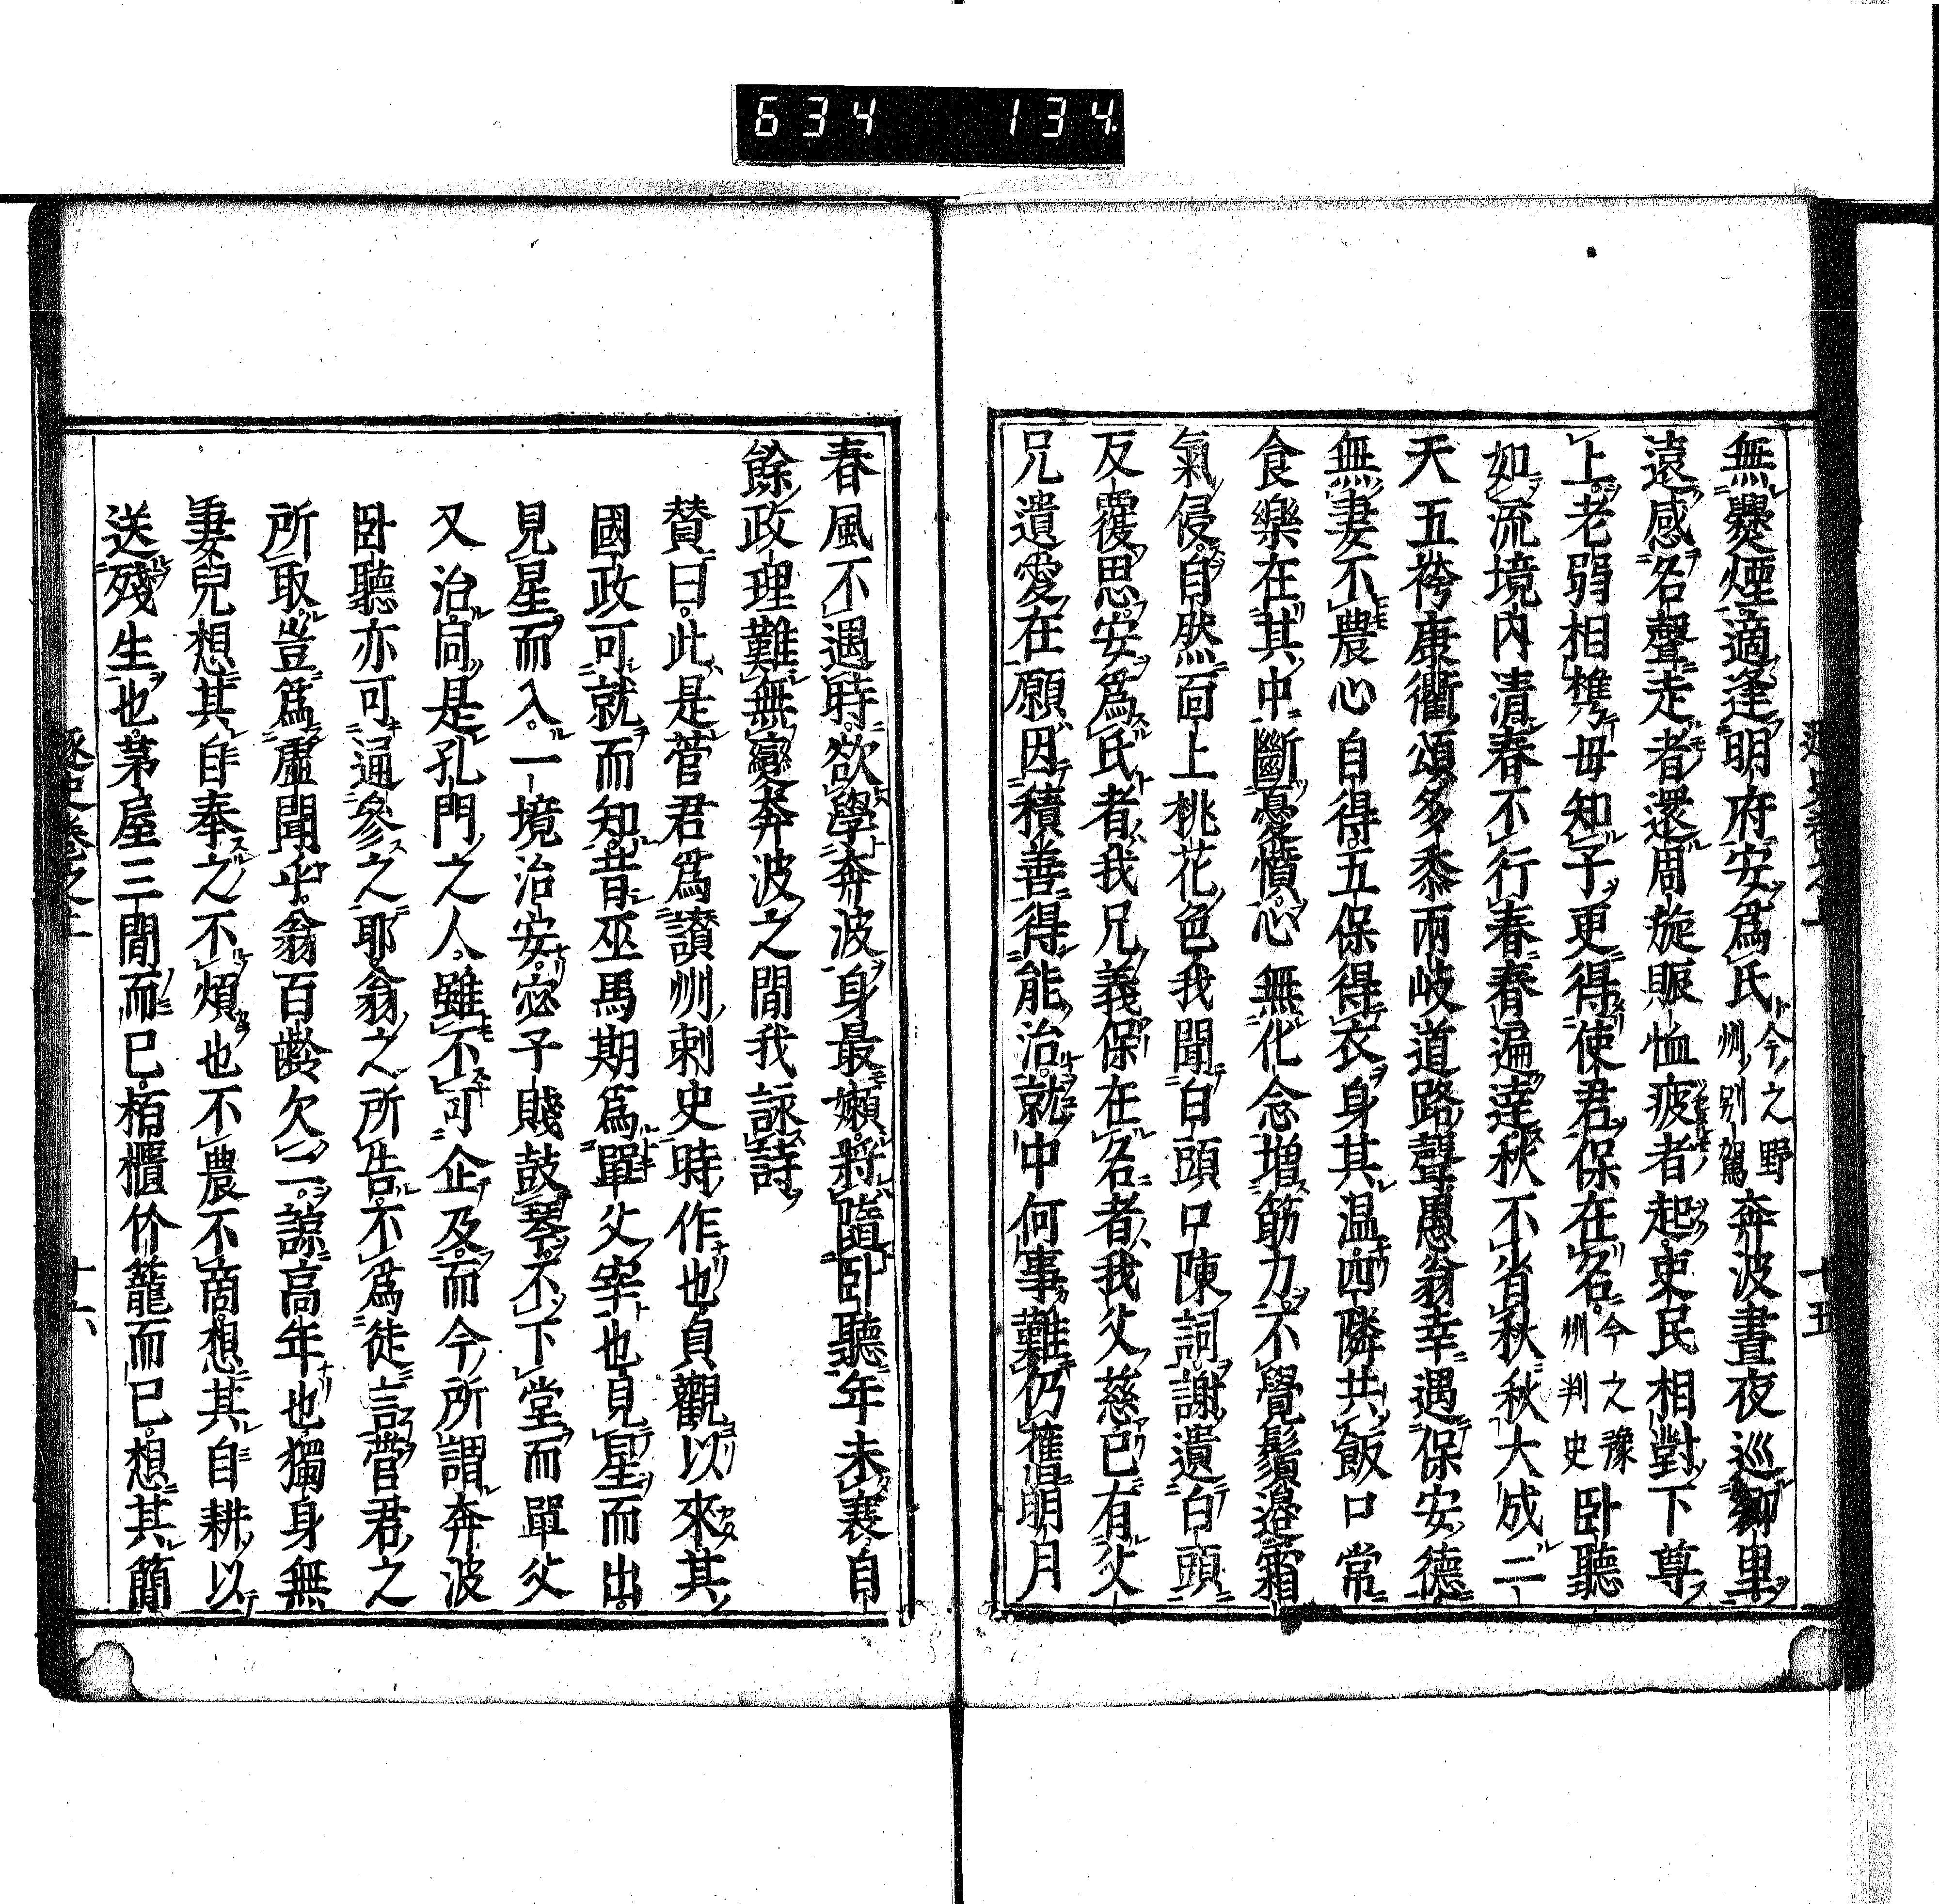 634 134
無爨煙適逢明府安爲氏今之野州別駕奔波晝夜巡鄉里
遠感名聲走者還周旋賑恤疲者起吏民相對下尊
上老弱相攜母知子更得使君保在名今之豫州判史臥聽
如流境內清春不行春春遍達秋不省秋秋大成二
天五袴康衢頌多黍兩岐道路聲愚翁幸遇保安德
無妻不農心自得五保得衣身其温四隣共飯口常
食樂在其中斷憂憤心無化念增筋力不覺鬚邊霜
氣侵自然面上桃花色我聞白頭口陳詞謝遣白頭
反覆思安爲氏者我兄義保在名者我父慈已有父
兄遺愛在願因積善得能治就中何事難仍舊明月
春風不遇時欲學奔波身最嬾將隨臥聽年未衰自
餘政理難無變奔波之間我詠詩
贊曰此是菅君爲讃州刺史時作也貞觀以來其
國政可就而知昔巫馬期爲單父宰也見星而出
見星而入一境治安宓子賤鼓琴不下堂而單父
又治同是孔門之人雖不可企及而今所謂奔波
臥聽亦可通參之耶翁之所告不爲徒言菅君之
所取豈爲虛聞乎翁百齡欠二諒高年也獨身無
妻兒想其自奉之不煩也不農不商想其自耕以
送殘生也茅屋三間而已栢櫃竹籠而已想其簡